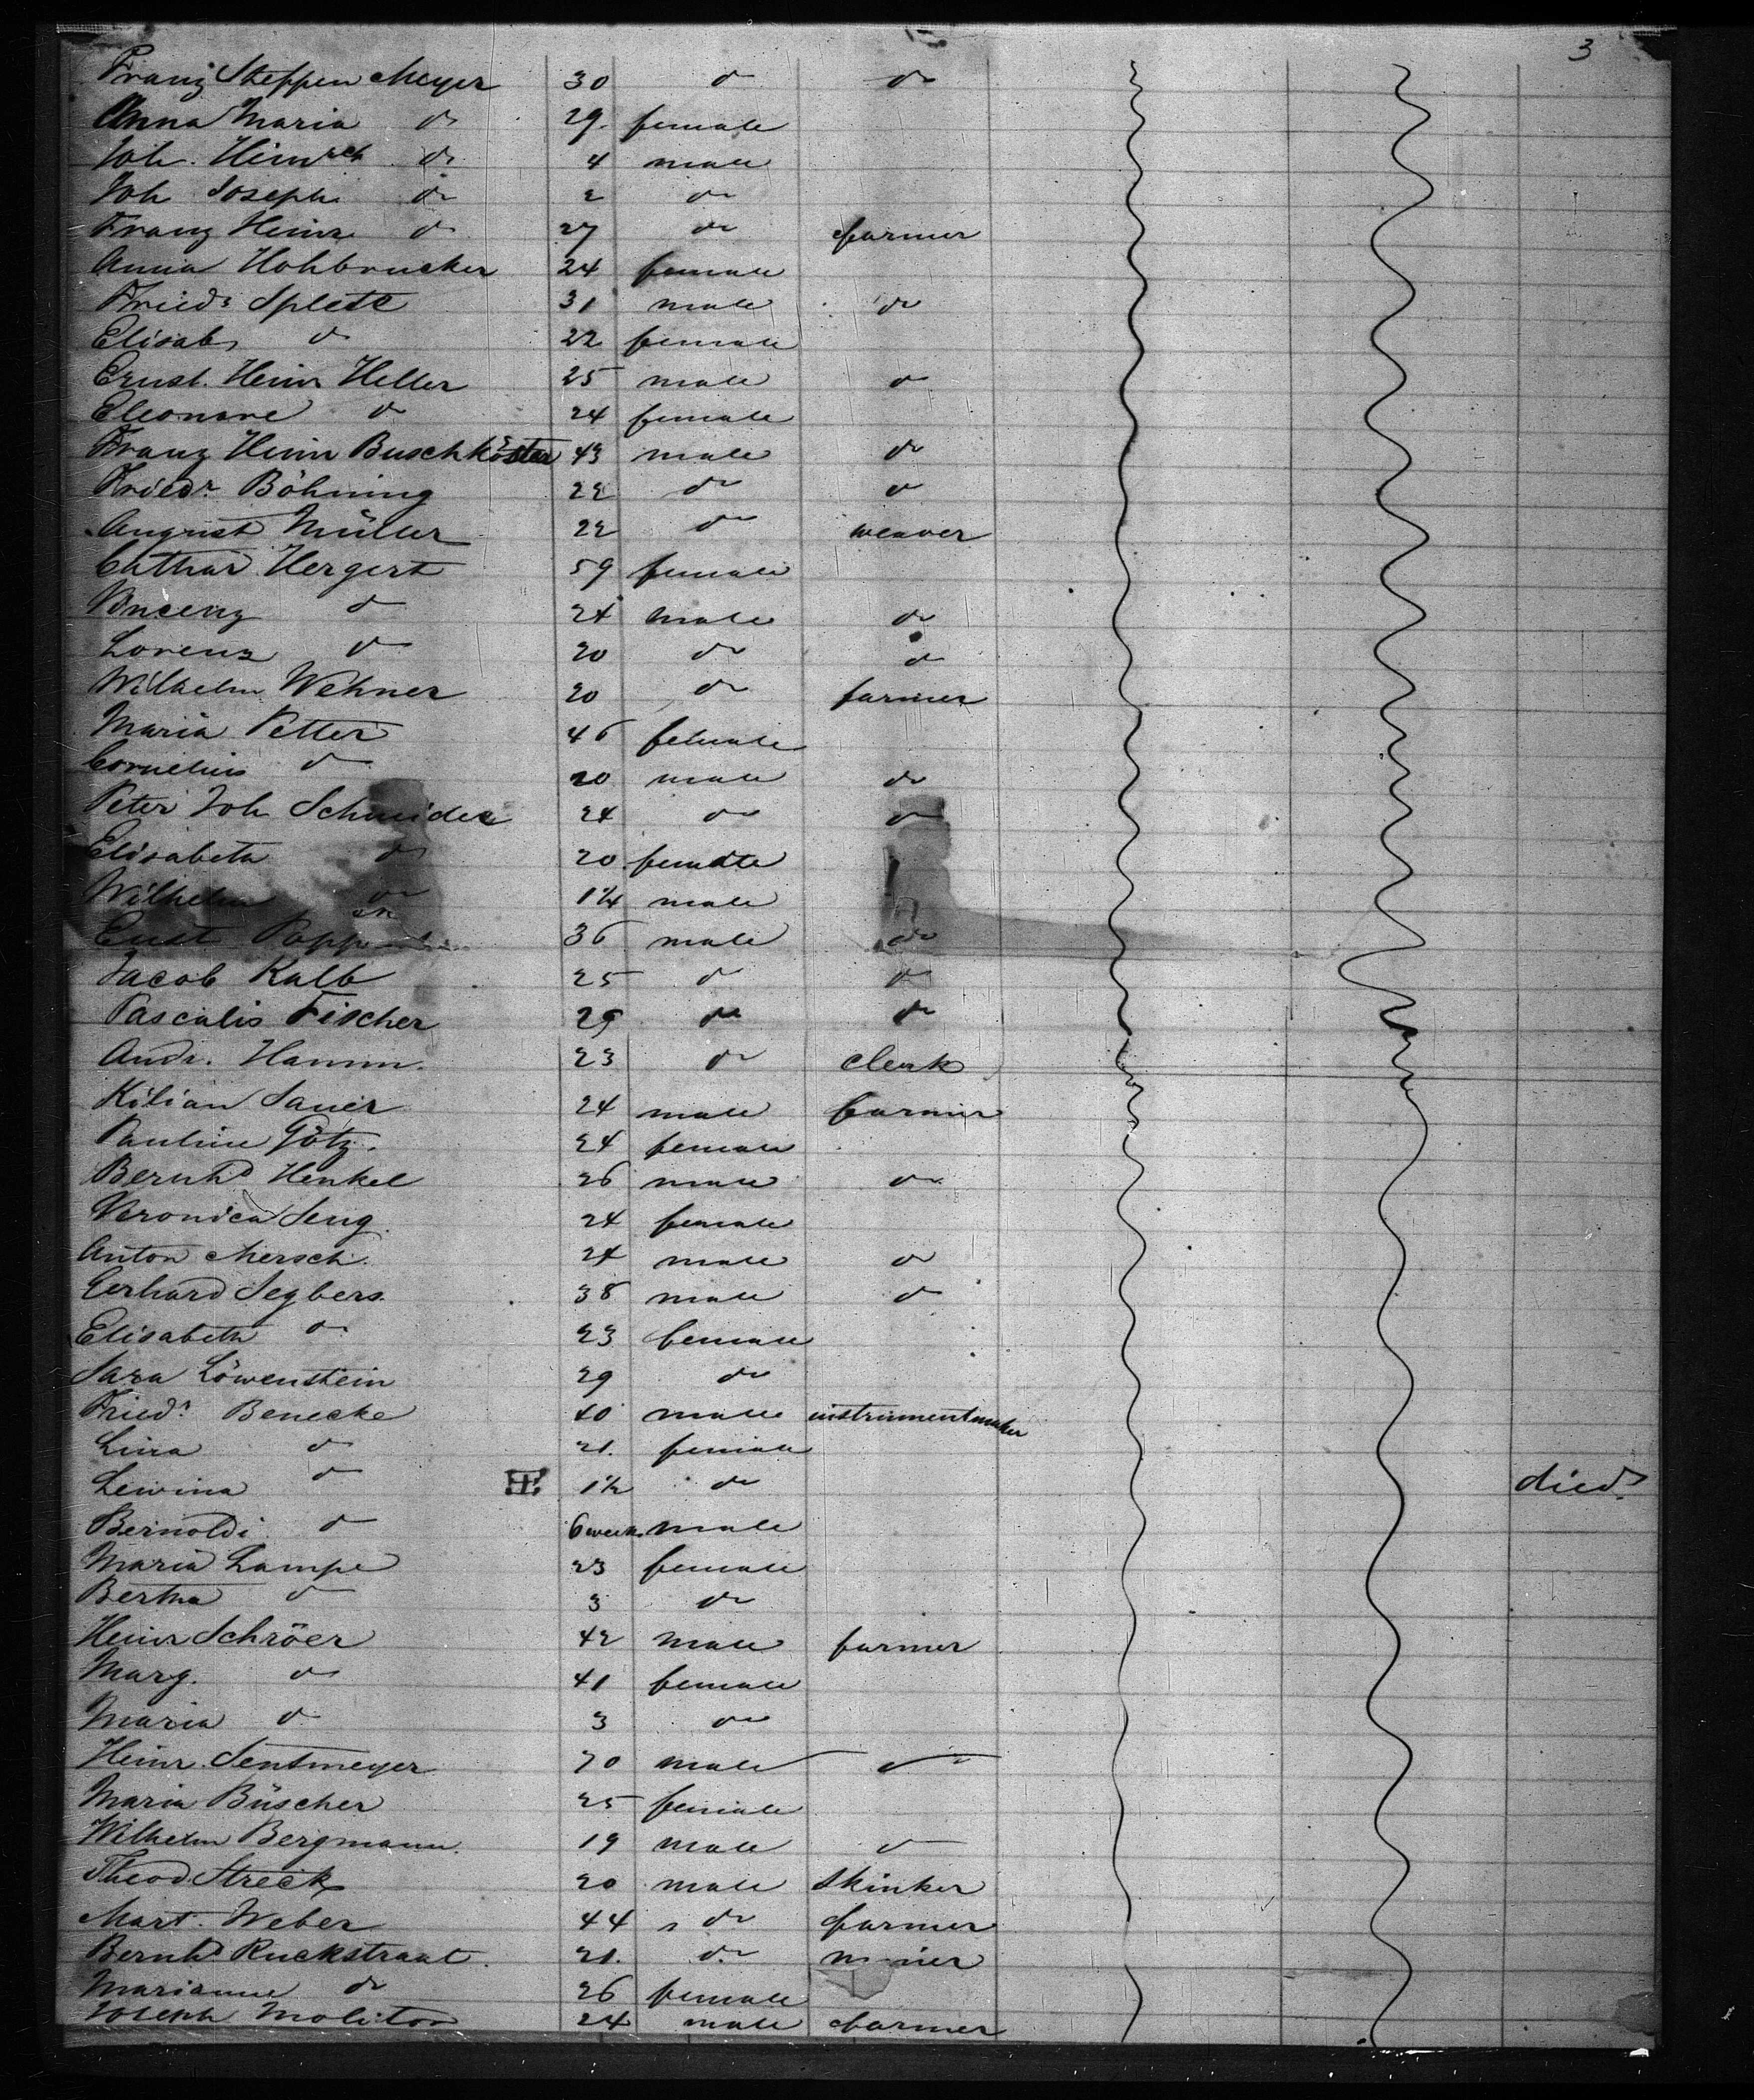 3
Franz Steffen Meyer 30 do do
Anna Maria do 29 female
Joh. Heinrch do 4 male
Joh Joseph do 2 do
Franz Heinr do 27 do farmer
Anna Hohbrucker 24 female
Friedr Splete 31 male do
Elisab do 22 female
Ernst Heinr Heller 25 male do
Eleonore do 24 female
Franz Heinr Buschköster 43 male do
Friedr Böhning 22 do do
August Müller 22 do weaver
Cathar Hergert 59 female
do 24 male do
Lorenz do 20 do do
Wilhelm Wehner 20 do farmer
Maria Petter 46 female
Cornelius do 20 male do
Peter Joh Schneider 24 do do
Elisabeth do 20 female
Wilhelm do 1¼ male
Popp 36 male do
Jacob Kalb 25 do do
Pascalis Fischer 29 do do
Andr. Hamm. 23 do clerk
Kilian Sauer 24 male farmer
Pauline Götz. 24 female
Bernhd Henkel 26 male do
Veronica Seng. 24 female
Anton Mersch. 24 male do
Gerhard Segbers. 38 male do
Elisabeth do 23 female
Sara Löwenstein 29 do
Friedr Benecke 40 male instrumentmaker
Lina do 21. female
Lewina do 1½ do died
Bernoldi do 6 weeks male
Maria Lampe 23 female
Bertha do 3 do
Heinr Schröer 42 male farmer
Marg. do 41 female
Maria do 3 do
Heinr. Sentmeyer 70 male do
Maria Büscher 25 female
Wilhelm Bergmann. 19 male do
Theod. Streck 20 male skinker
Mart. Weber 44 do farmer
Bernhd Ruckstraat. 21. do miner
Marianne do 26 female
Joseph Molitor 24 male farmer